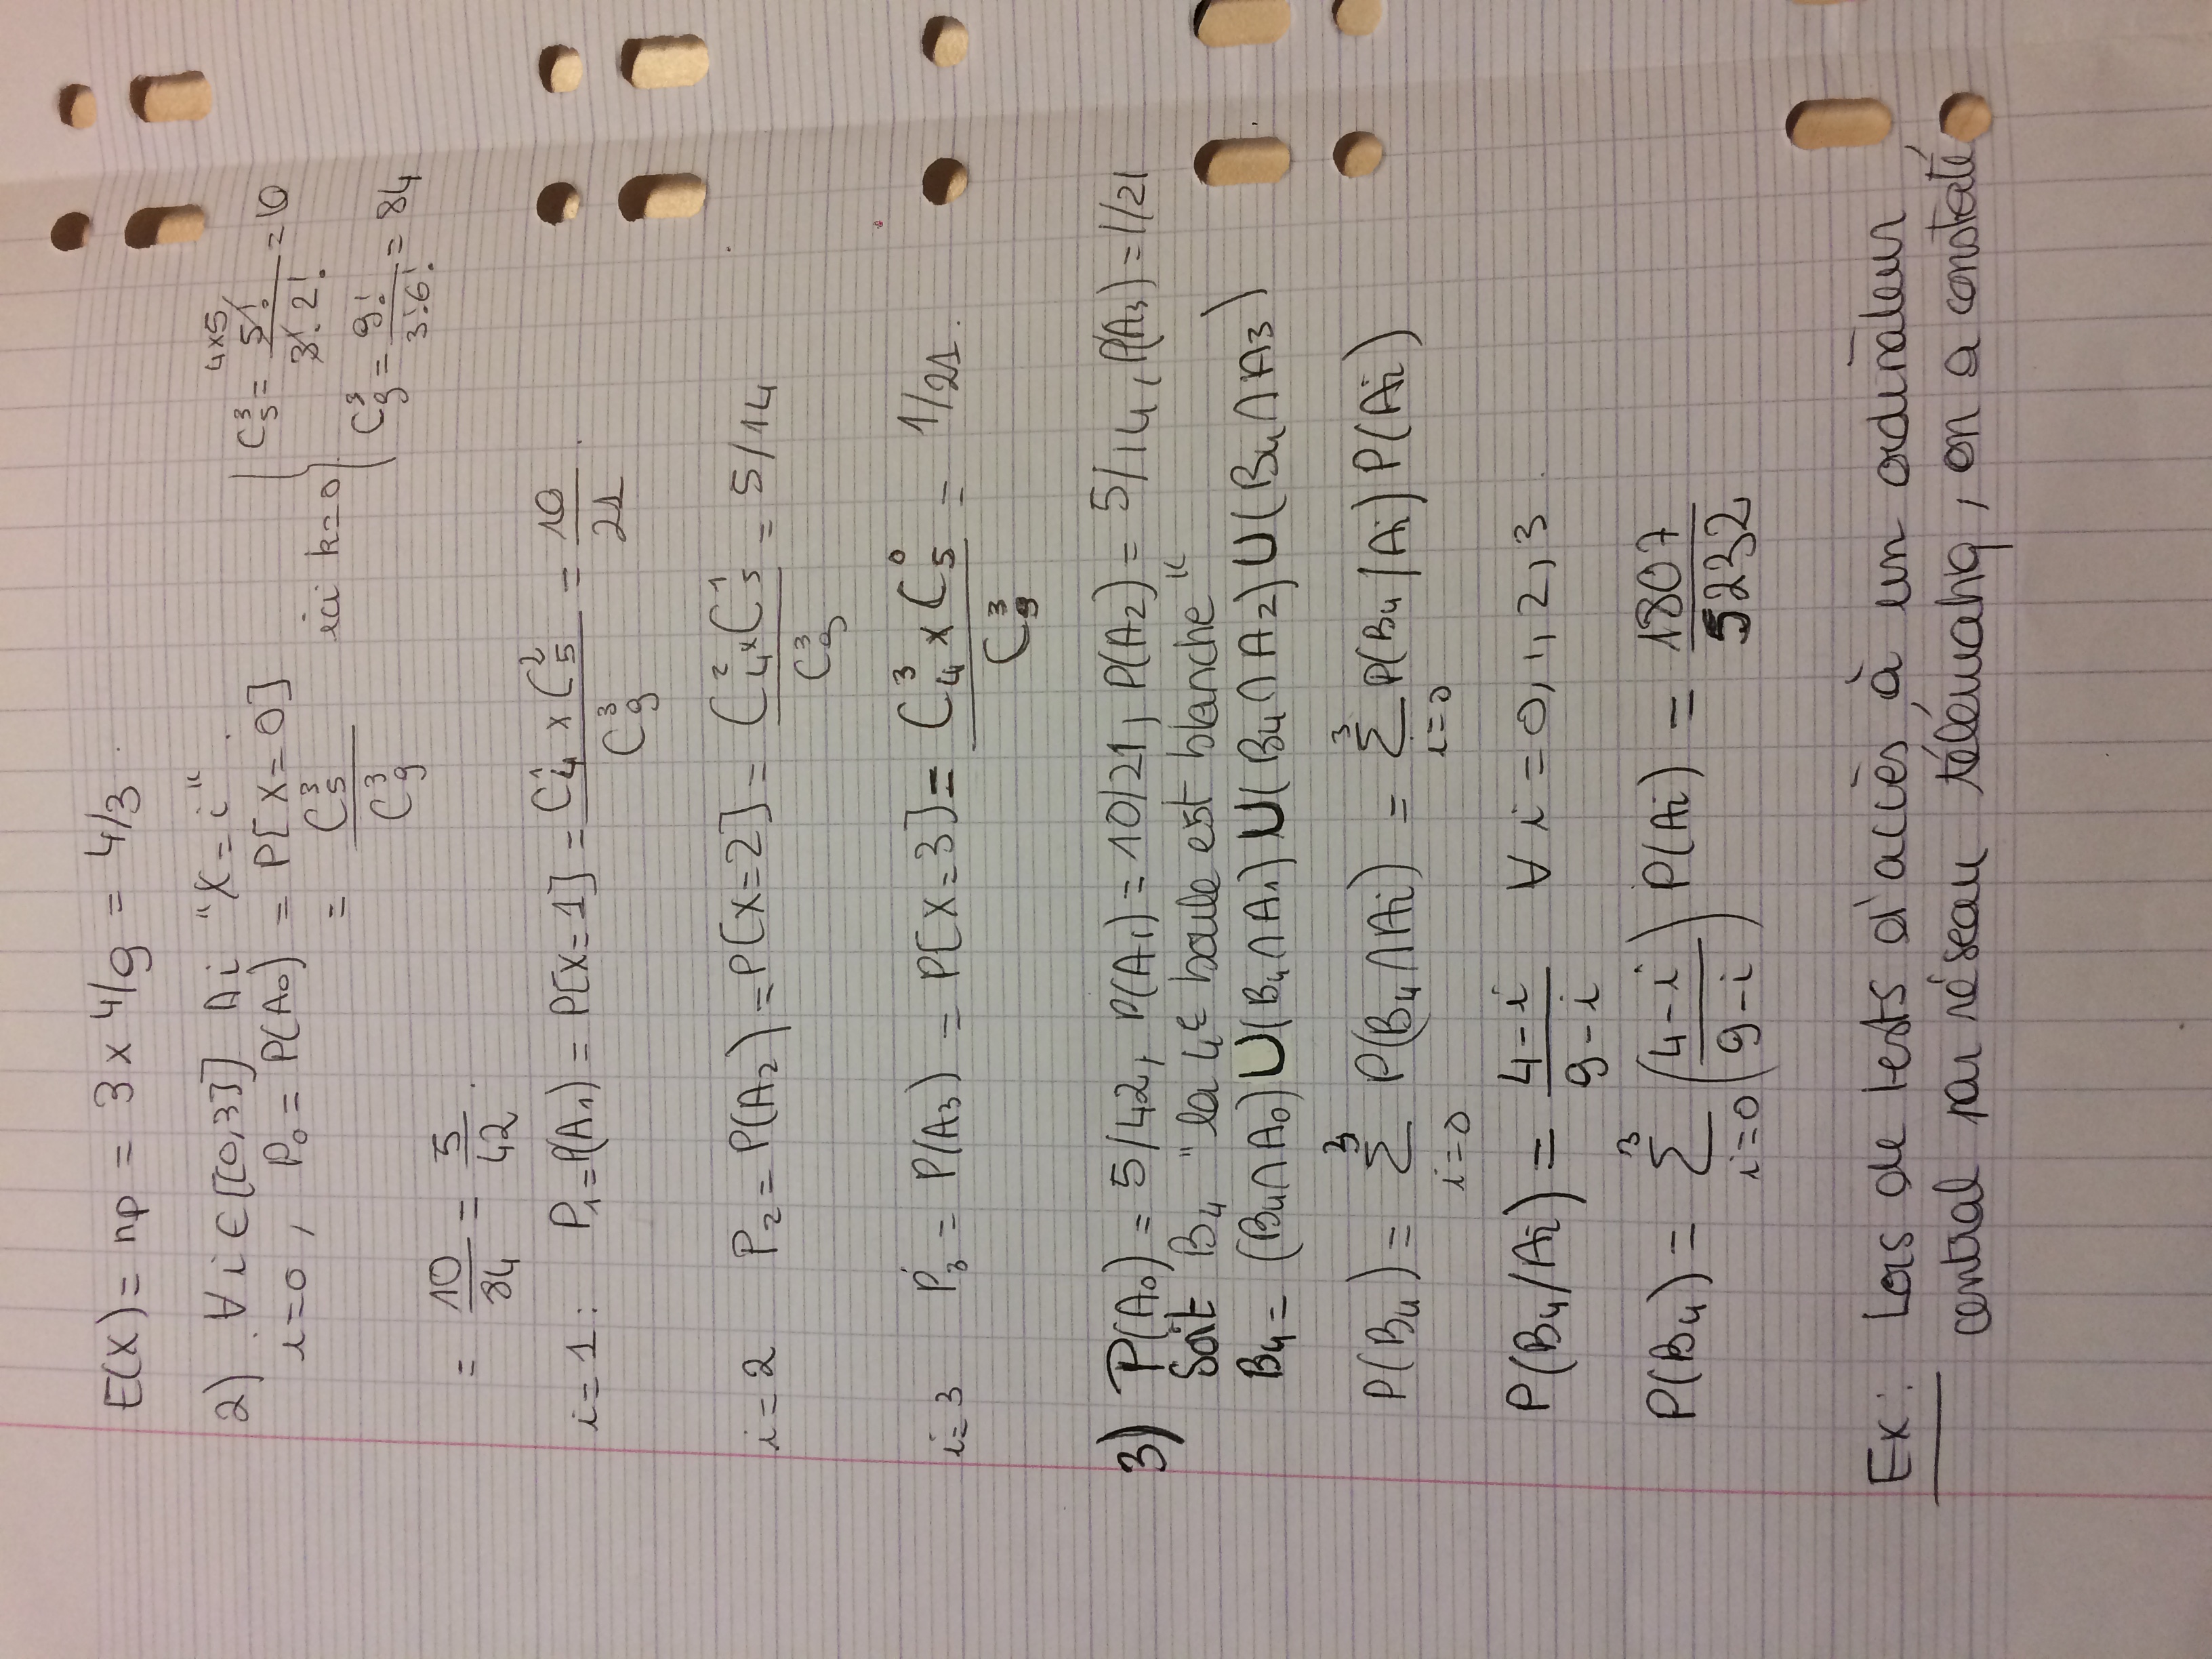 E(X) = np = 3 x 4/9 = 4/3.
2) ∀ i ∈ [[0,3]] Ai "X = i".
i=0, P₀ = P(A₀) = P[X=0]
= C₅³ / C₉³ ici k=0
4x5
C₅³ = 5! / 3!.2! = 10
C₉³ = 9! / 3!6! = 84
= 10/84 = 5/42.
i=1: P₁=P(A₁) = P[X=1] = C₄¹ x C₅² / C₉³ = 10/21.
i=2 P₂ = P(A₂) = P[X=2] = C₄² x C₅¹ / C₉³ = 5/14
i=3 P₃ = P(A₃) = P[X=3] = C₄³ x C₅⁰ / C₉³ = 1/21.
3) P(A₀) = 5/42, P(A₁) = 10/21, P(A₂) = 5/14, P(A₃) = 1/21
Soit B₄ "la 4e boule est blanche"
B₄ = (B₄∩A₀) U (B₄∩A₁) U (B₄∩A₂) U (B₄∩A₃)
P(B₄) = Σ_{i=0}^{3} P(B₄∩Ai) = Σ_{i=0}^{3} P(B₄/Ai) P(Ai)
P(B₄/Ai) = 4-i / 9-i ∀ i = 0, 1, 2, 3.
P(B₄) = Σ_{i=0}^{3} (4-i / 9-i) P(Ai) = 1807/5232
Ex: Lors de tests d'accès à un ordinateur
central par réseau télématiq, on a constaté